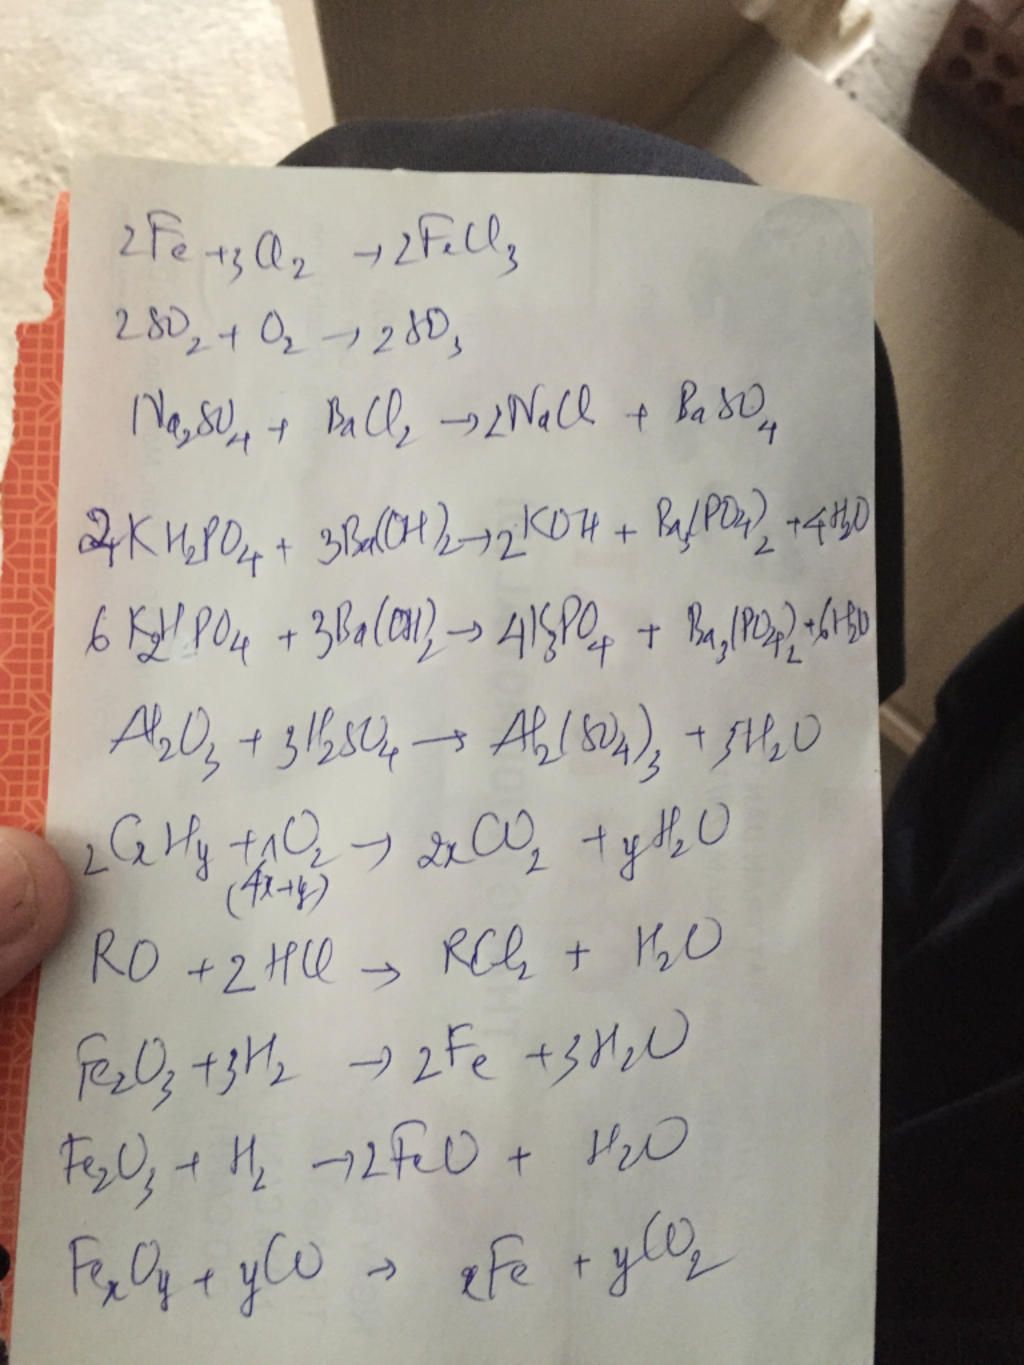 2Fe + 3Cl2 → 2FeCl3
2SO2 + O2 → 2SO3
Na2SO4 + BaCl2 → 2NaCl + BaSO4
2KH2PO4 + 3Ba(OH)2 → 2KOH + Ba3(PO4)2 + 4H2O
6K2HPO4 + 3Ba(OH)2 → 4K3PO4 + Ba3(PO4)2 + 6H2O
Al2O3 + 3H2SO4 → Al2(SO4)3 + 3H2O
2CxHy + O2 → 2xCO2 + yH2O
(4x+y)
RO + 2HCl → RCl2 + H2O
Fe2O3 + 3H2 → 2Fe + 3H2O
Fe2O3 + H2 → 2FeO + H2O
FexOy + yCO → xFe + yCO2